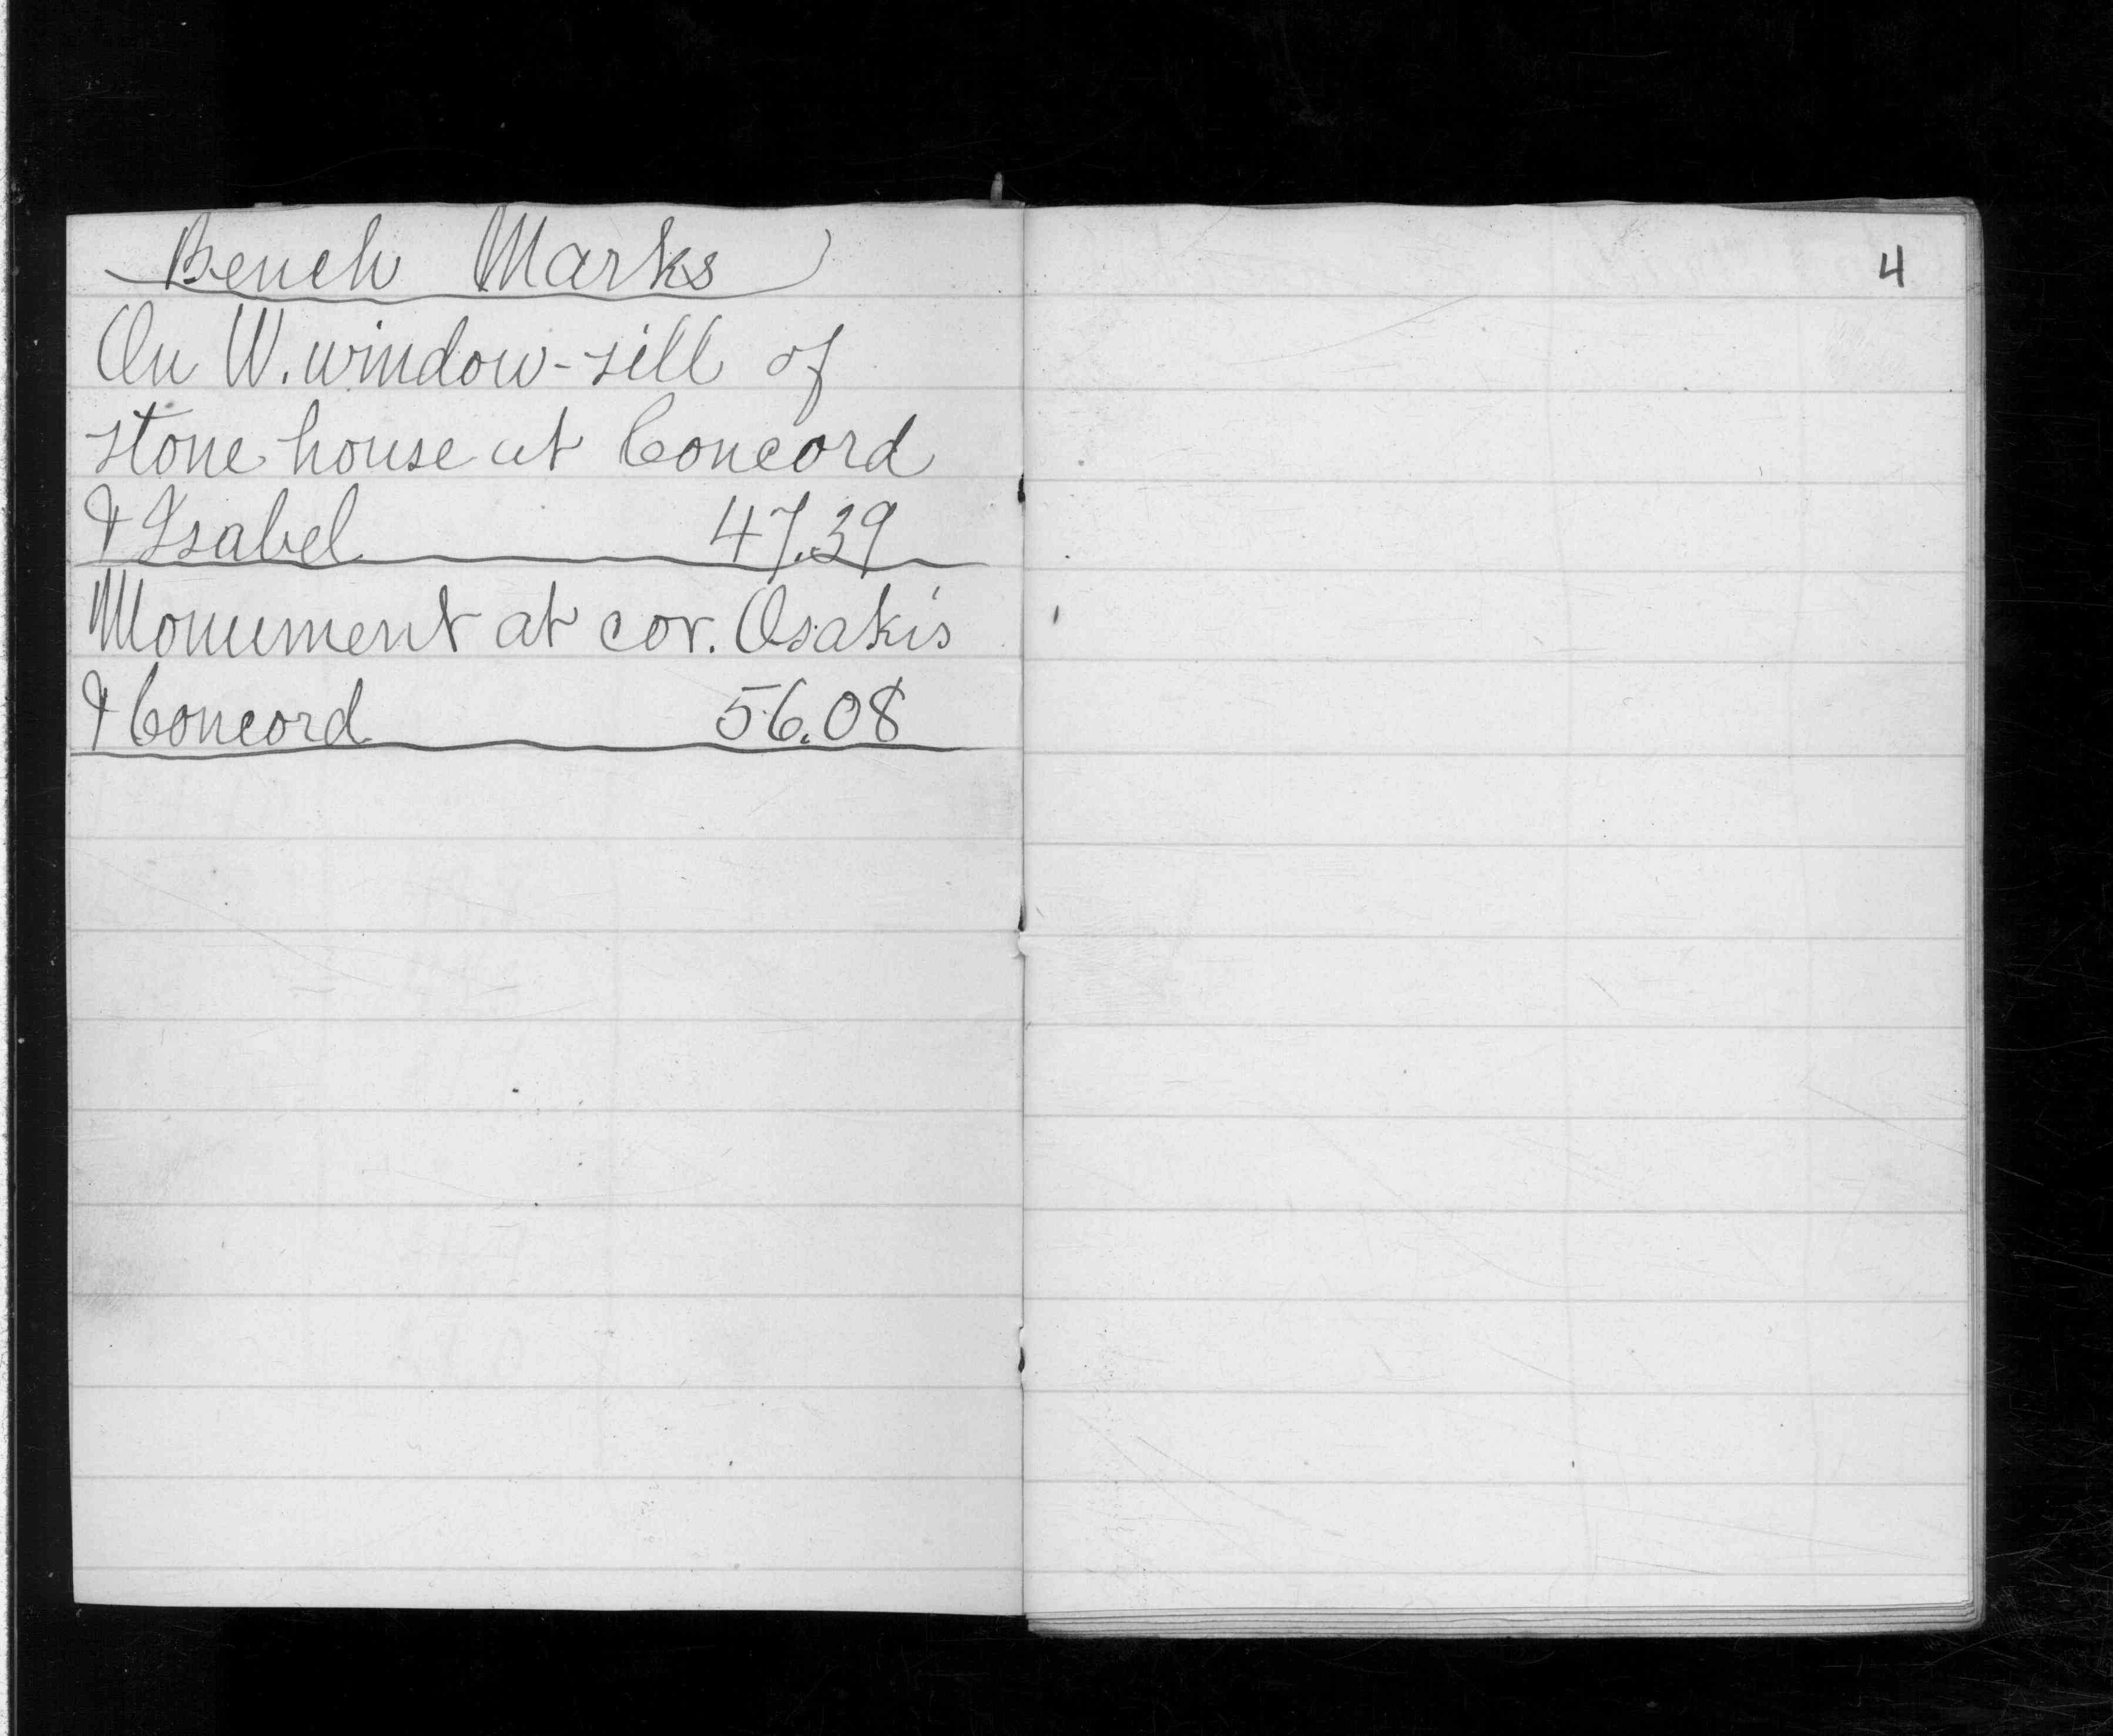 Bench Marks
On W. window-sill of
stone house at Concord
& Isabel 47.39
Monument at cor. Osakis
& Concord 56.08
4